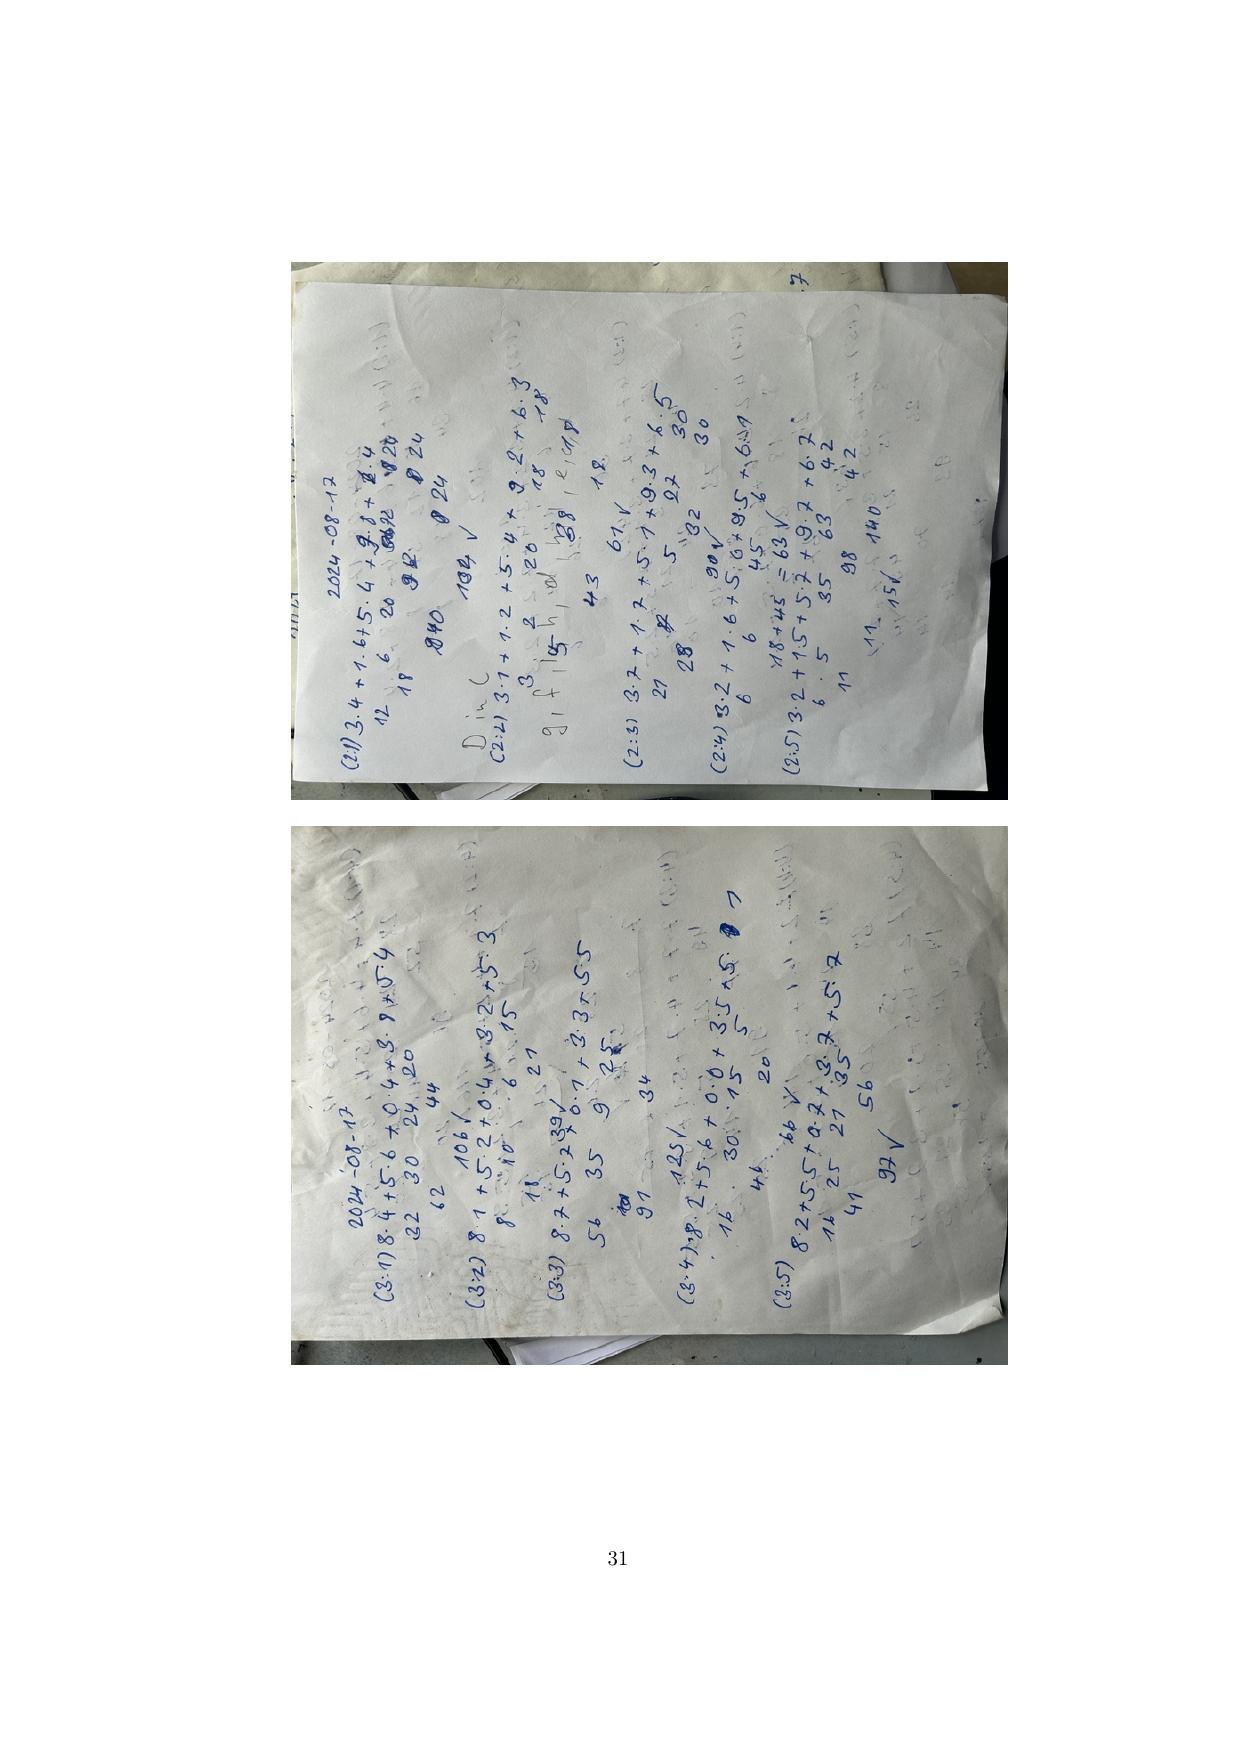 2024-08-17
(2:1) 3·4+1·6+5·4+9·8+
12 6 20 24
18 24
24
134 √
D in C
(2:2) 3·1+1·2+5·4+9·2+6·3
3 2 20 18 18
5
43 18
61 √
(2:3) 3·7+1·7+5·1+9·3+6·5
21 5 27 30
28 32 30
90 √
(2:4) 3·2+1·6+5·0+9·5+6·1
6 6 45 6
18+45 = 63 √
(2:5) 3·2+1·5+5·7+9·7+6·7
6 · 5 35 63 42
11 98 42
11 140
151
2024-08-17
(3:1) 8·4+5·6+0·4+3·8+5·4
32 30 24 20
62 44
106 √
(3:2) 8·1+5·2+0·4+3·2+5·3
8 10 6 15
18 21
39 √
(3:3) 8·7+5·7+0·1+3·3+5·5
56 35 9 25
91 34
125 √
(3:4) 8·2+5·6+0·0+3·5+5· 1
16 30 15 5
46 20
66 √
(3:5) 8·2+5·5+0·7+3·7+5·7
16 25 21 35
41 56
97 √
31